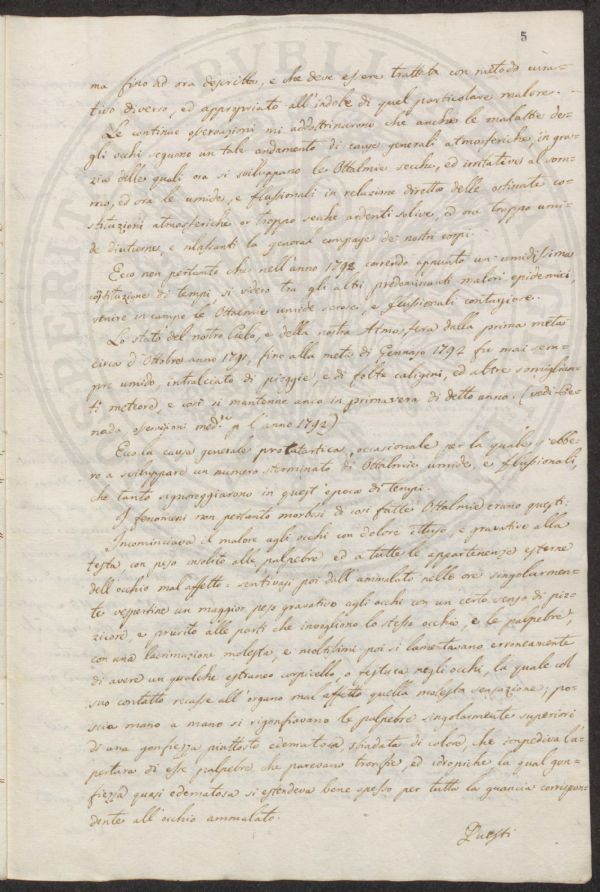 5
ma fino ad ora descritta, e che deve essere trattata con metodo cura-
tivo diverso, ed appropriato all'indole di quel particolare malore.
Le continue osservazioni mi addottrinarono che anche le malattie de-
gli occhi seguono un tale andamento di cause generali atmosferiche, in gra-
zia delle quali ora si sviluppano le Ottalmie secche, ed irritative al som-
mo, ed ora le umide, e flussionali in relazione diretta delle ostinate co-
stituzioni atmosferiche or troppo secche ardenti solive, ed ora troppo umi-
de diuturne, e rilassanti la general compage de' nostri corpi.
Ecco non pertanto che nell'anno 1792 correndo appunto un'umidissima
costituzione di tempi, si videro tra gli altri predominanti malori epidemici,
venire in campo le Ottalmie umide sierose, e flussionali contagiose.
Lo stato del nostro Cielo, e della nostra Atmosfera dalla prima metà
circa d'Ottobre anno 1791, fino alla metà di Gennajo 1792 fu mai sem-
pre umido, intralciato di pioggie, e di folte caligini, ed altre somiglian-
ti meteore, e così si mantenne anco in primavera di detto anno. (vedi
nada osservazioni med. p l'anno 1792)
Ecco la causa generale procatartica, occasionale per la quale s'ebbe-
ro a sviluppare un numero sterminato di Ottalmie umide, e flussionali,
che tanto signoreggiarono in quest'epoca di tempi.
I fenomeni non pertanto morbosi di così fatte Ottalmie erano questi.
Incominciava il malore agli occhi con dolore ottuso, e gravativo alla
testa con peso insolito alle palpebre ed a tutte le appartenenze esterne
dell'occhio mal affetto. sentivasi poi dall'ammalato nelle ore singolarmen-
te vespertine un maggior peso gravativo agli occhi con un certo senso di piz-
zicore, e prurito alle parti che invogliono lo stesso occhio, e le palpebre,
con una lacrimazione molesta, e moltissimi poi si lamentavano erroneamente
di avere un qualche estraneo corpicello, o festuca negli occhi, la quale col
suo contatto recasse all'organo mal affetto quella molesta sensazione; po-
scia mano a mano si rigonfiavano le palpebre singolarmente superiori
d'una gonfiezza piuttosto edematosa sfiadata di colore, che impediva l'a-
pertura di esse palpebre che parevano tronfie, ed idropiche la qual gon-
fiezza quasi edematosa si estendeva bene spesso per tutta la guancia corrispon-
dente all'occhio ammalato.
Questi